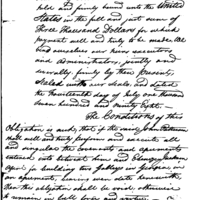 held and firmly bound unto the United
States in the full and just sum of
Three thousand Dollars for which
payment well and truly to be made We
bind ourselves our heirs executors
and administrators, jointly and
severally firmly by these Presents,
Sealed with our Seals, and dated
the fourteenth day of July one thousand
seven hundred and ninety Eight.
The Conditions of this
Obligation is such, that if the
shall well and truly perform and execute all
and singular the covenants and agreements
entered into between him and Ebenezer Jackson
for building two Galleys in Georgia in
an agreement bearing even date herewith,
then this obligation shall be void, otherwise
to remain in full force and virtue.